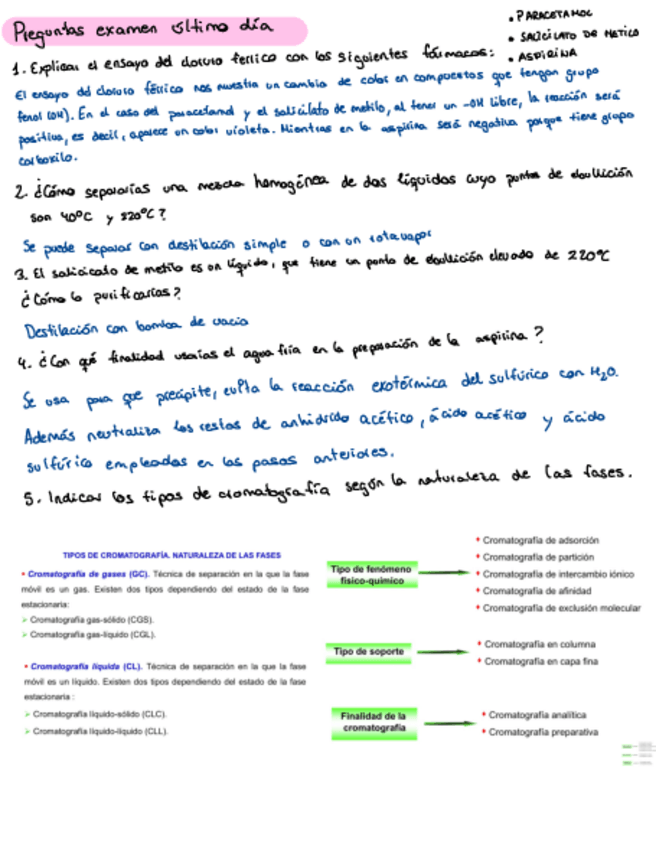 Preguntas examen último día
• PARACETAMOL
• SALICILATO DE METILO
• ASPIRINA
1. Explicar el ensayo del cloruro ferrico con los siguientes fármacos:
El ensayo del cloruro férrico nos muestra un cambio de color en compuestos que tengan grupo
fenol (OH). En el caso del paracetamol y el salicilato de metilo, al tener un -OH libre, la reacción será
positiva, es decir, aparece un color violeta. Mientras en la aspirina será negativa porque tiene grupo
carboxilo.
2. ¿Cómo separarías una mezcla homogénea de dos líquidos cuyo puntos de ebullición
son 40°C y 120°C?
Se puede separar con destilación simple o con un rotavapor
3. El salicicato de metilo es un líquido, que tiene un punto de ebullición elevado de 220°C
¿Cómo lo purificarías?
Destilación con bomba de vacío
4. ¿Con qué finalidad usarías el agua fría en la preparación de la aspirina?
Se usa para que precipite, evita la reacción exotérmica del sulfúrico con H₂O.
Además neutraliza los restos de anhidrido acético, ácido acético y ácido
sulfúrico empleados en los pasos anteriores.
5. Indicar los tipos de cromatografía según la naturaleza de las fases.
TIPOS DE CROMATOGRAFÍA. NATURALEZA DE LAS FASES
• Cromatografía de gases (GC). Técnica de separación en la que la fase
móvil es un gas. Existen dos tipos dependiendo del estado de la fase
estacionaria:
➢ Cromatografía gas-sólido (CGS).
➢ Cromatografía gas-líquido (CGL).
• Cromatografía líquida (CL). Técnica de separación en la que la fase
móvil es un líquido. Existen dos tipos dependiendo del estado de la fase
estacionaria :
➢ Cromatografía líquido-sólido (CLC).
➢ Cromatografía líquido-líquido (CLL).
Tipo de fenómeno
físico-químico
• Cromatografía de adsorción
• Cromatografía de partición
• Cromatografía de intercambio iónico
• Cromatografía de afinidad
• Cromatografía de exclusión molecular
Tipo de soporte
• Cromatografía en columna
• Cromatografía en capa fina
Finalidad de la
cromatografía
• Cromatografía analítica
• Cromatografía preparativa